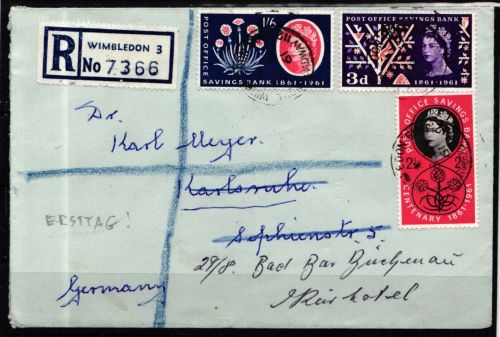 R
WIMBLEDON 3
No 7366
1/6
POST OFFICE SAVINGS BANK 1861-1961
POST OFFICE SAVINGS BANK
3d
1861-1961
POST OFFICE SAVINGS BANK
2½ 2½
CENTENARY 1861-1961
Dr.
Karl Meyer.
Karlsruhe.
Sophienstr. 5
ERSTTAG!
29/8. Bad Bar Büchenau
Germany
Kurhotel